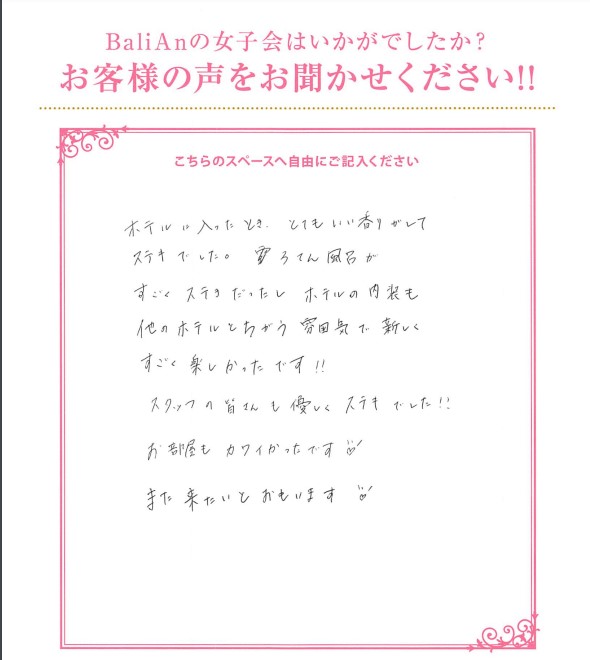 BaliAnの女子会はいかがでしたか?
お客様の声をお聞かせください!!
こちらのスペースへ自由にご記入ください
ホテルに入ったとき、とてもいい香りがして
ステキでした。 ろてん風呂が
すごく ステキだったし ホテルの内装も
他のホテルとちがう 雰囲気で 新しく
すごく 楽しかったです!!
スタッフの皆さんも優しく ステキでした!!
お部屋も カワイかったです♡
また 来たいと おもいます♡